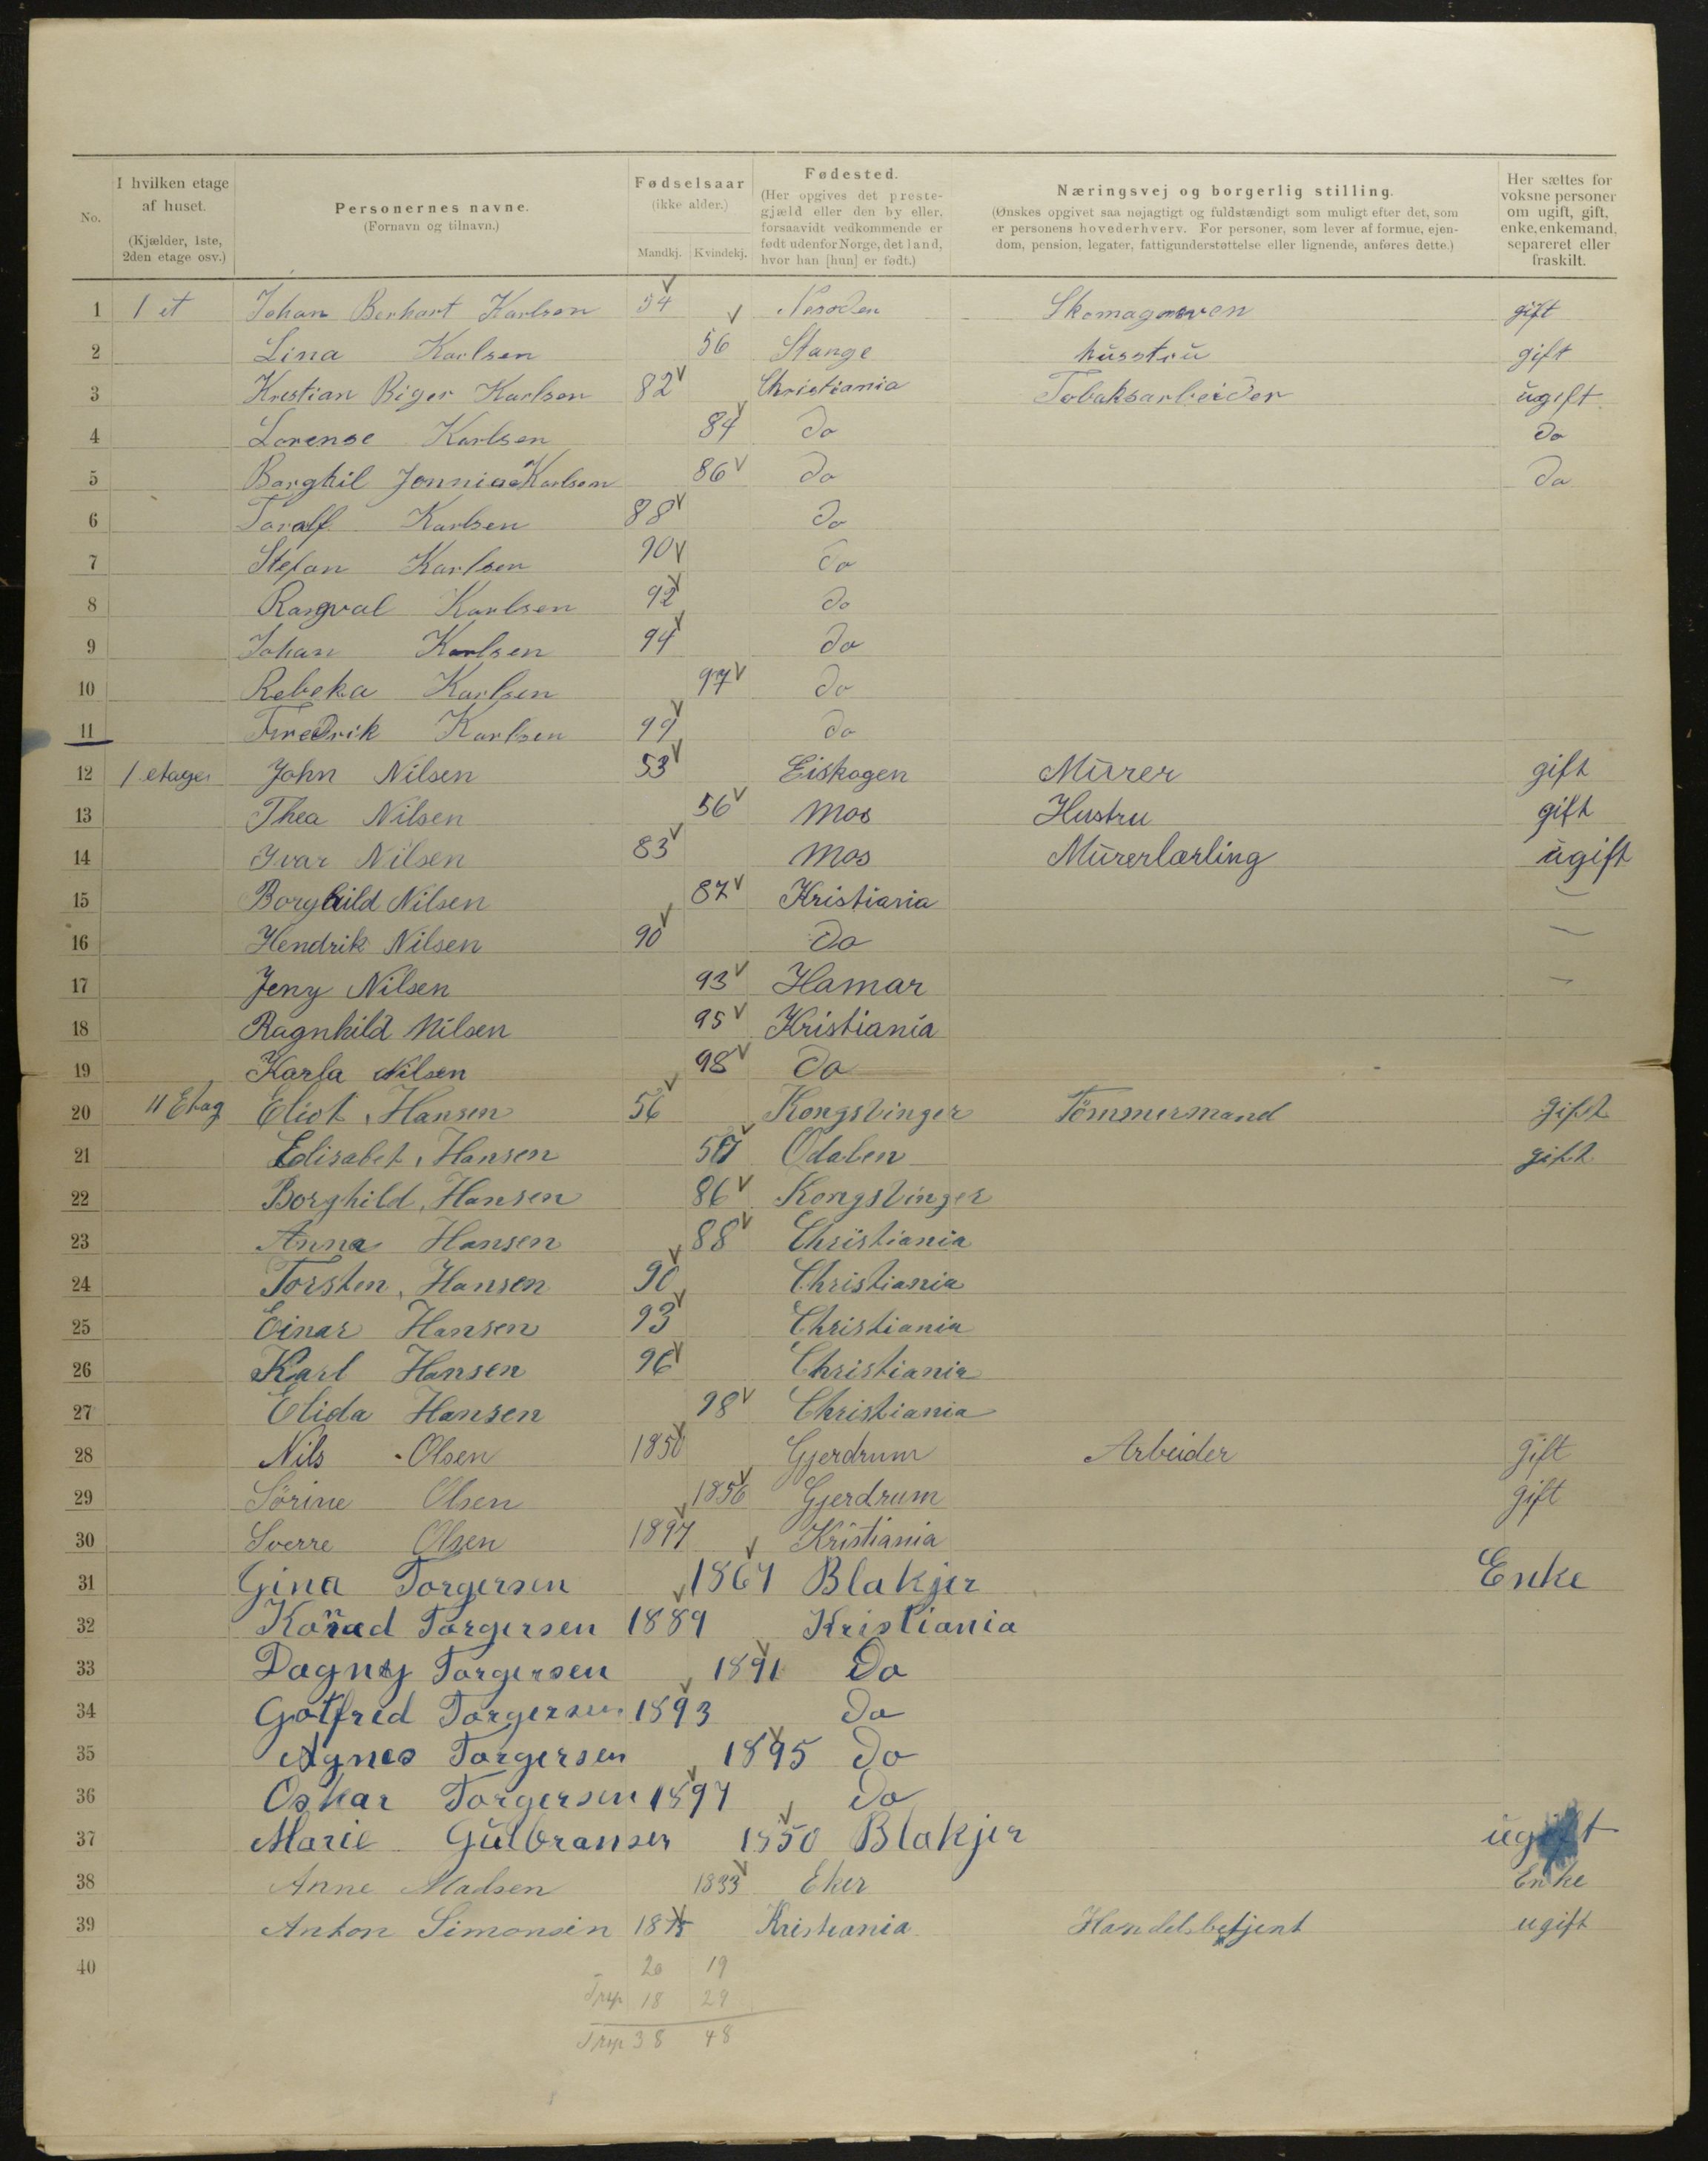 No.
I hvilken etage af huset.
(Kjælder, 1ste, 2den etage osv.)
Personernes navne.
(Fornavn og tilnavn.)
Fødselsaar
(ikke alder.)
Mandkj. Kvindekj.
Fødested.
(Her opgives det prestegjæld eller den by eller, forsaavidt vedkommende er født udenfor Norge, det land, hvor han [hun] er født.)
Næringsvej og borgerlig stilling.
(Ønskes opgivet saa nøjagtigt og fuldstændigt som muligt efter det, som er personens hovederhverv. For personer, som lever af formue, ejendom, pension, legater, fattigunderstøttelse eller lignende, anføres dette.)
Her sættes for voksne personer om ugift, gift, enke, enkemand, separeret eller fraskilt.
1 1 et Johan Berhart Karlsen 54 Nesoden Skomagersven gift
2 Lina Karlsen 56 Stange hüsstrü gift
3 Krestian Biger Karlsen 82 Christiania Tobaksarbeider ügift
4 Lorense Karlsen 84 Do Do
5 Borghil Karlsen 86 Do Do
6 Toralf Karlsen 88 Do
7 Stefan Karlsen 90 Do
8 Rangval Karlsen 92 Do
9 Johan Karlsen 94 Do
10 Rebeka Karlsen 97 Do
11 Fredrik Karlsen 99 Do
12 1 etage John Nilsen 53 Eiskogen Mürer gift
13 Thea Nilsen 56 Mos Hustru gift
14 Ivar Nilsen 83 Mos Mürerlærling ügift
15 Borghild Nilsen 87 Kristiania —
16 Hendrik Nilsen 90 Do —
17 Jeny Nilsen 93 Hamar —
18 Ragnhild Nilsen 95 Kristiania
19 Karla Nilsen 98 Do
20 II Etag Eliot Hansen 56 Kongsvinger Tömmermand gift
21 Elisabet Hansen 57 Odalen gift
22 Borghild Hansen 86 Kongsvinger
23 Anna Hansen 88 Christiania
24 Torsten Hansen 90 Christiania
25 Einar Hansen 93 Christiania
26 Karl Hansen 96 Christiania
27 Elida Hansen 98 Christiania
28 Nils Olsen 1850 Gjerdrum Arbeider gift
29 Sörine Olsen 1856 Gjerdrum gift
30 Sverre Olsen 1897 Kristiania
31 Gina Torgersen 1867 Blakjer Enke
32 Konrad Torgersen 1889 Kristiania
33 Dagny Torgersen 1891 Do
34 Gotfred Torgersen 1893 Do
35 Agnes Torgersen 1895 Do
36 Oskar Torgersen 1897 Do
37 Marie Gülbransen 1850 Blakjer ügift
38 Anne Madsen 1833 Eker Enke
39 Anton Simonsen 1875 Kristiania Handelsbetjent ugift
40
20 19
18 29
38 48